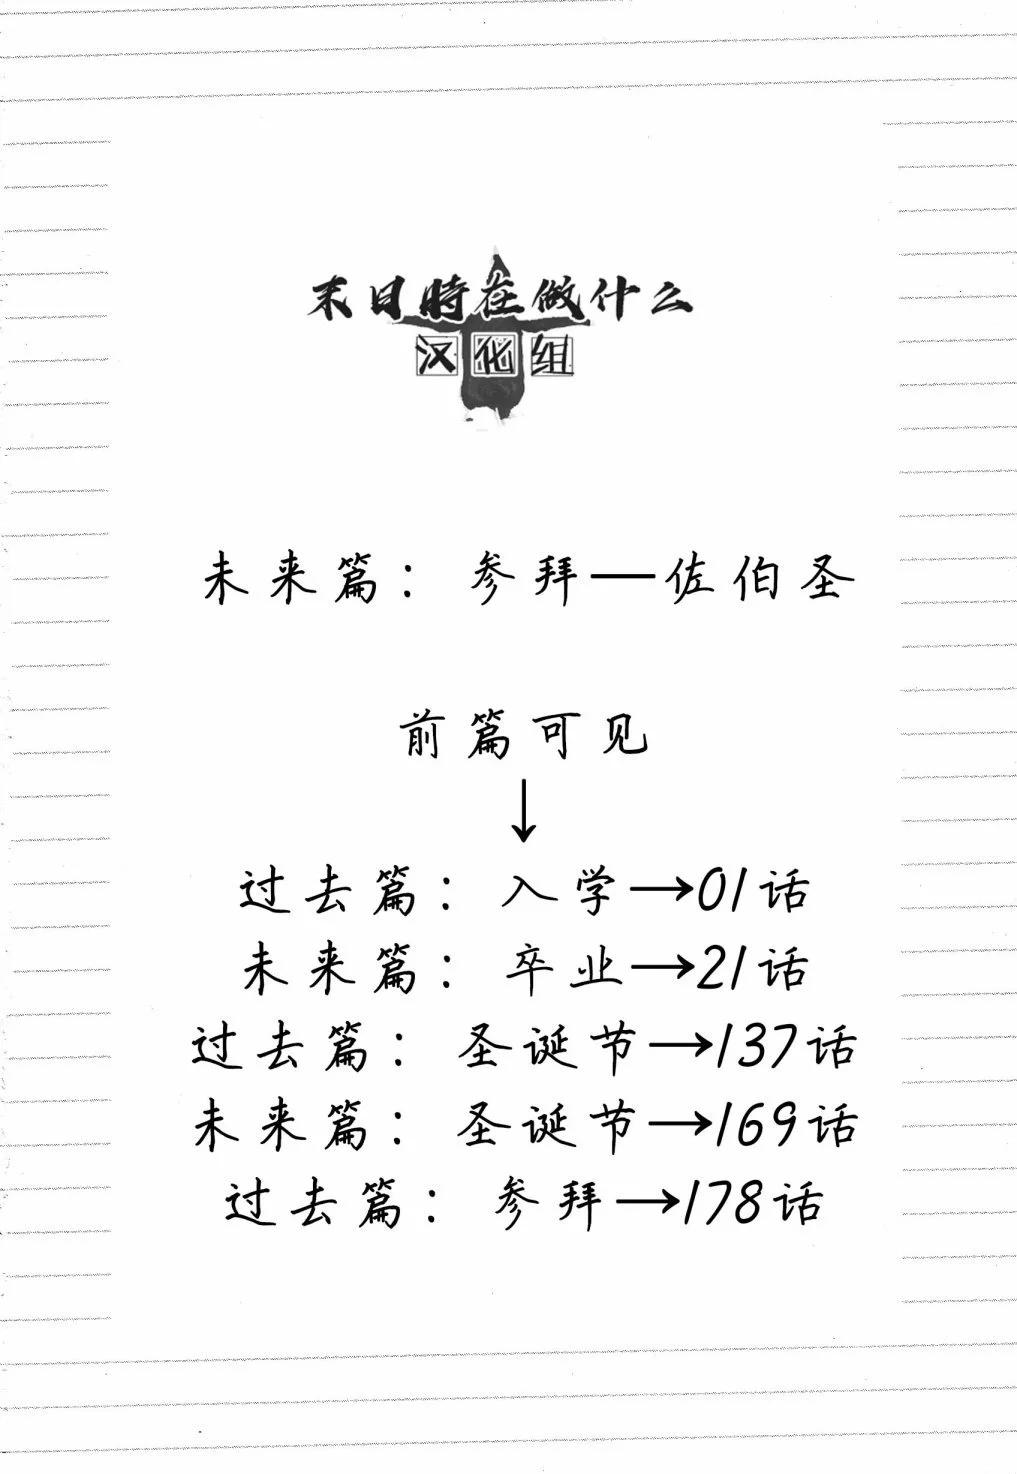 末日時在做什么
汉化组
未来篇：参拜—佐伯圣
前篇可见
↓
过去篇：入学→01话
未来篇：卒业→21话
过去篇：圣诞节→137话
未来篇：圣诞节→169话
过去篇：参拜→178话